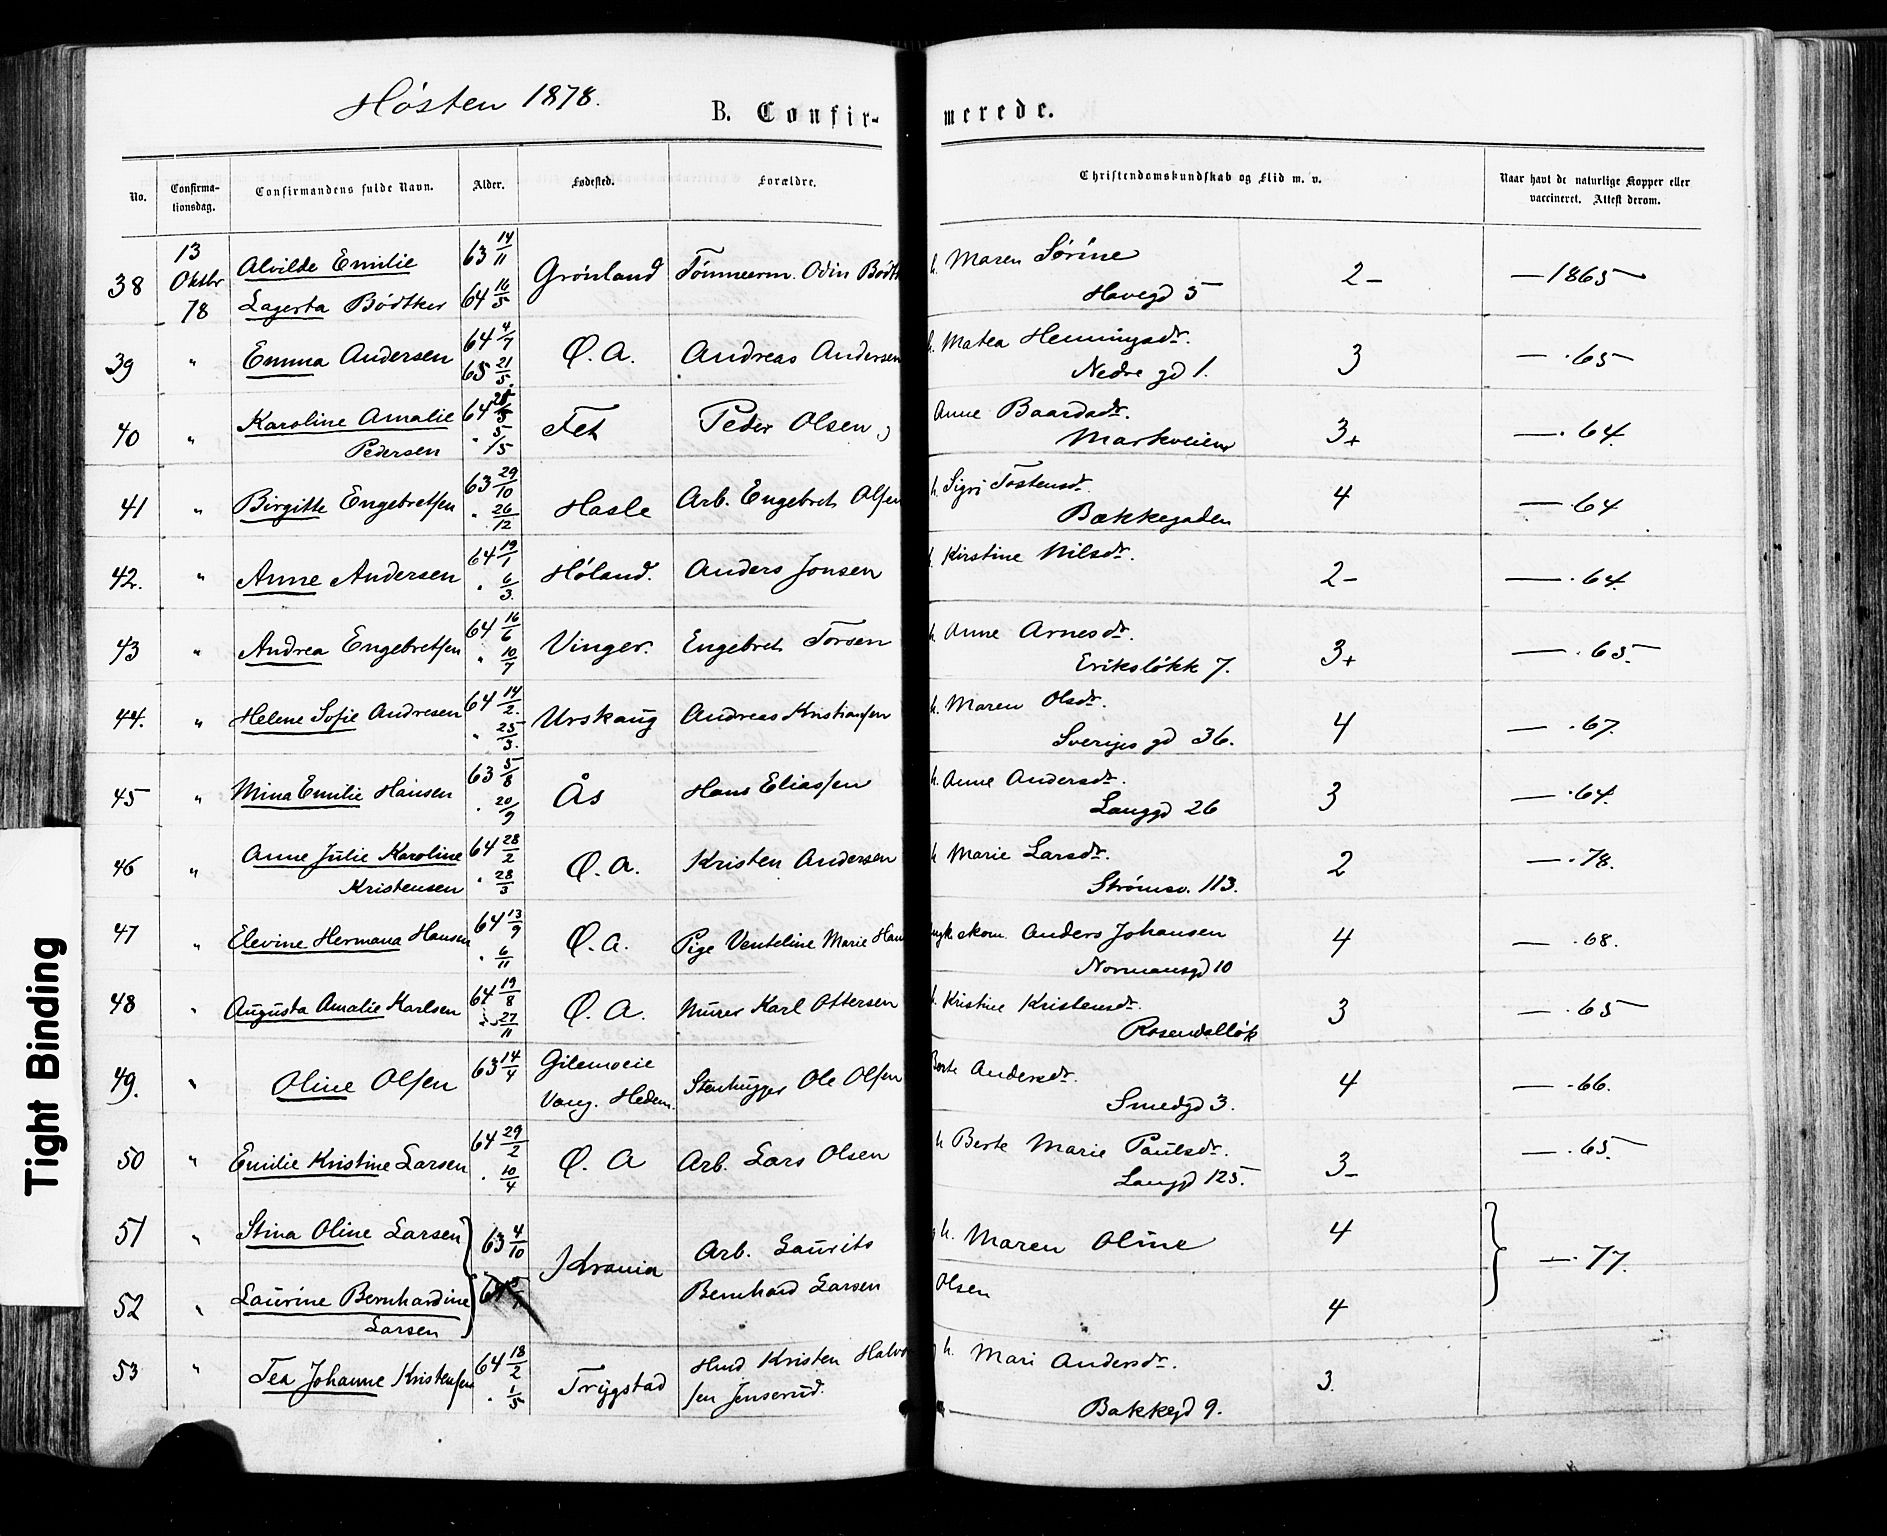 Høsten 1878.
B. Confirmerede.
No. Confirmationsdag. Confirmandens fulde Navn. Alder. Fødested. Forældre. Christendomskundskab og Flid m. v. Naar havt de naturlige Kopper eller vaccineret. Attest derom.
38 13 Oktbr 78 Alvilde Emilie 63 14/11 Grönland Tömmerm. Odin Bödt h. Maren Sörine 2- —1865—
Lagerta Bödtker 64 16/5 Havegd 5
39 " Emma Andersen 64 4/7 Ø. A. Andreas Andersen h. Matea Henningsdr. 3 — ·65—
65 21/5. Nedre gd 1.
40 " Karoline Amalie 64 Fet Peder Olsen Anne Baardsdr. 3+ —·64.
Pedersen " 5/5 Markveien
41 " Birgitte Engebretsen 63 29/10 Hasle Arb. Engebret Olsen h. Sigri Tostensdr. 4 —·64
" 26/12 Bækkegaden
42. " Anne Andersen 64 19/1 Höland. Anders Jonsen Kirstine Nilsdr. 2- —·64.
" 6/3.
43 " Andrea Engebretsen 64 16/6 Vinger. Engebret Torsen h. Anne Arnesdr. 3+ —·65.
" 10/7 Erikslökk 7.
44. " Helene Sofie Andresen 64 14/2. Urskaug Andreas Kristiansen h. Maren Olsdr. 4 — ·67.
" 25/3. Sveriges gd 36.
45 " Mina Emilie Hansen 63 5/8 Ås Hans Eliassen h. Anne Andersdr. 3 —·64.
" 20/9 Langgd 26
46 " Anne Julie Karoline 64 28/2 Ø. A. Kristen Andersen h Marie Larsdr. 2 —·78.
Kristensen " 28/3 Strömsv. 113.
47 " Elevine Hermana Hansen 64 13/9 Ø. A. Pige Venteline Marie Han ugk skom. Anders Johansen 4 — ·68.
" 6/11 Normansgd 10
48 " Augusta Amalie Karlsen 64 19/8 Ø. A. Murer Karl Ottersen h. Kristine Kristensdr. 3 —·65
" 27/11 Rosendallök
49. " Oline Olsen 63 14/4 Gilemoeie Stenhugger Ole Olsen Berte Andersdr. 4 —·66.
Vang. Hedem. Smedgd 3.
50 " Emilie Kristine Larsen 64 29/2 Ø. A Arb. Lars Olsen h Berte Marie Paulsdr. 3- —·65.
" 10/4 Langgd 125.
51 " Stina Oline Larsen 63 4/10 Krania Arb. Laurits gh. Maren Oline 4 —·77.
52 " Laurine Bernhardine Bernhard Larsen Olsen 4
Larsen
53 " Tea Johanne Kristensen 64 18/2 Trygstad Husmd Kristen Halvor h. Mari Andersdr. 3.
" 1/5 sen Jenserud. Bakkegd 9.
Tight Binding